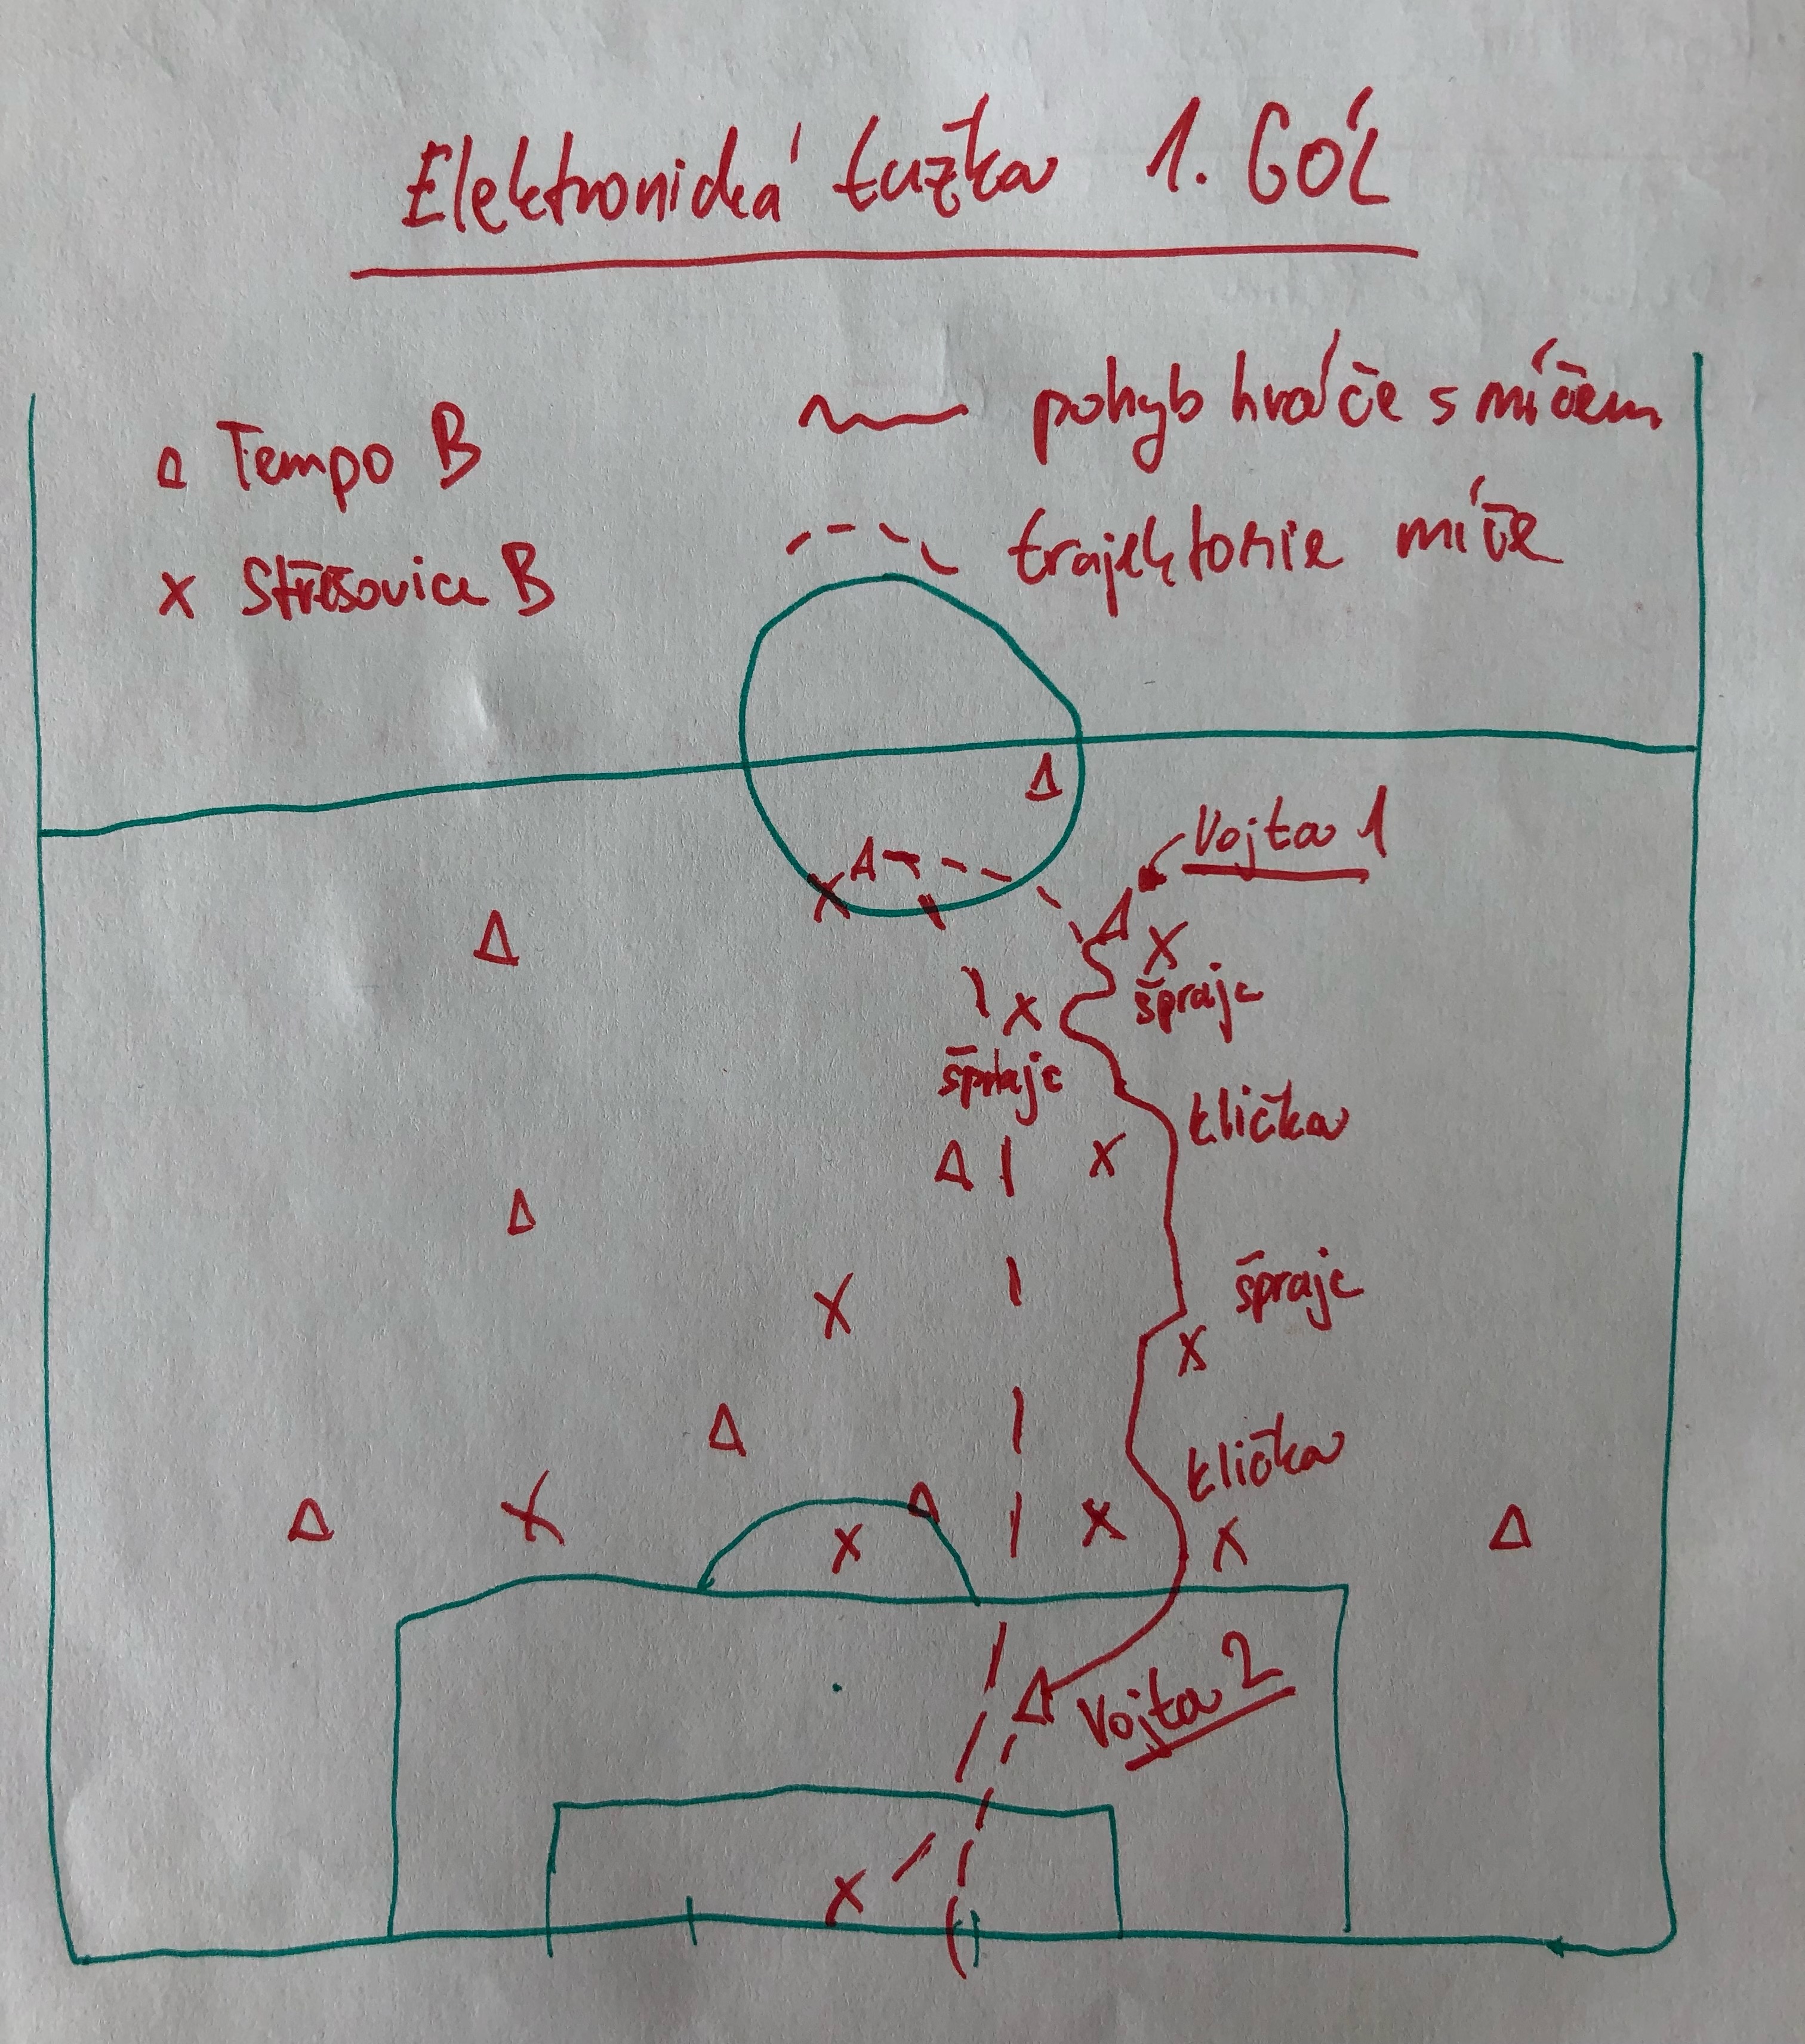 Elektronická tužka 1. GÓL
Δ Tempo B
x Střešovice B
pohyb hráče s míčem
trajektorie míče
Vojta 1
špraje
špraje
klička
špraje
klička
Vojta 2